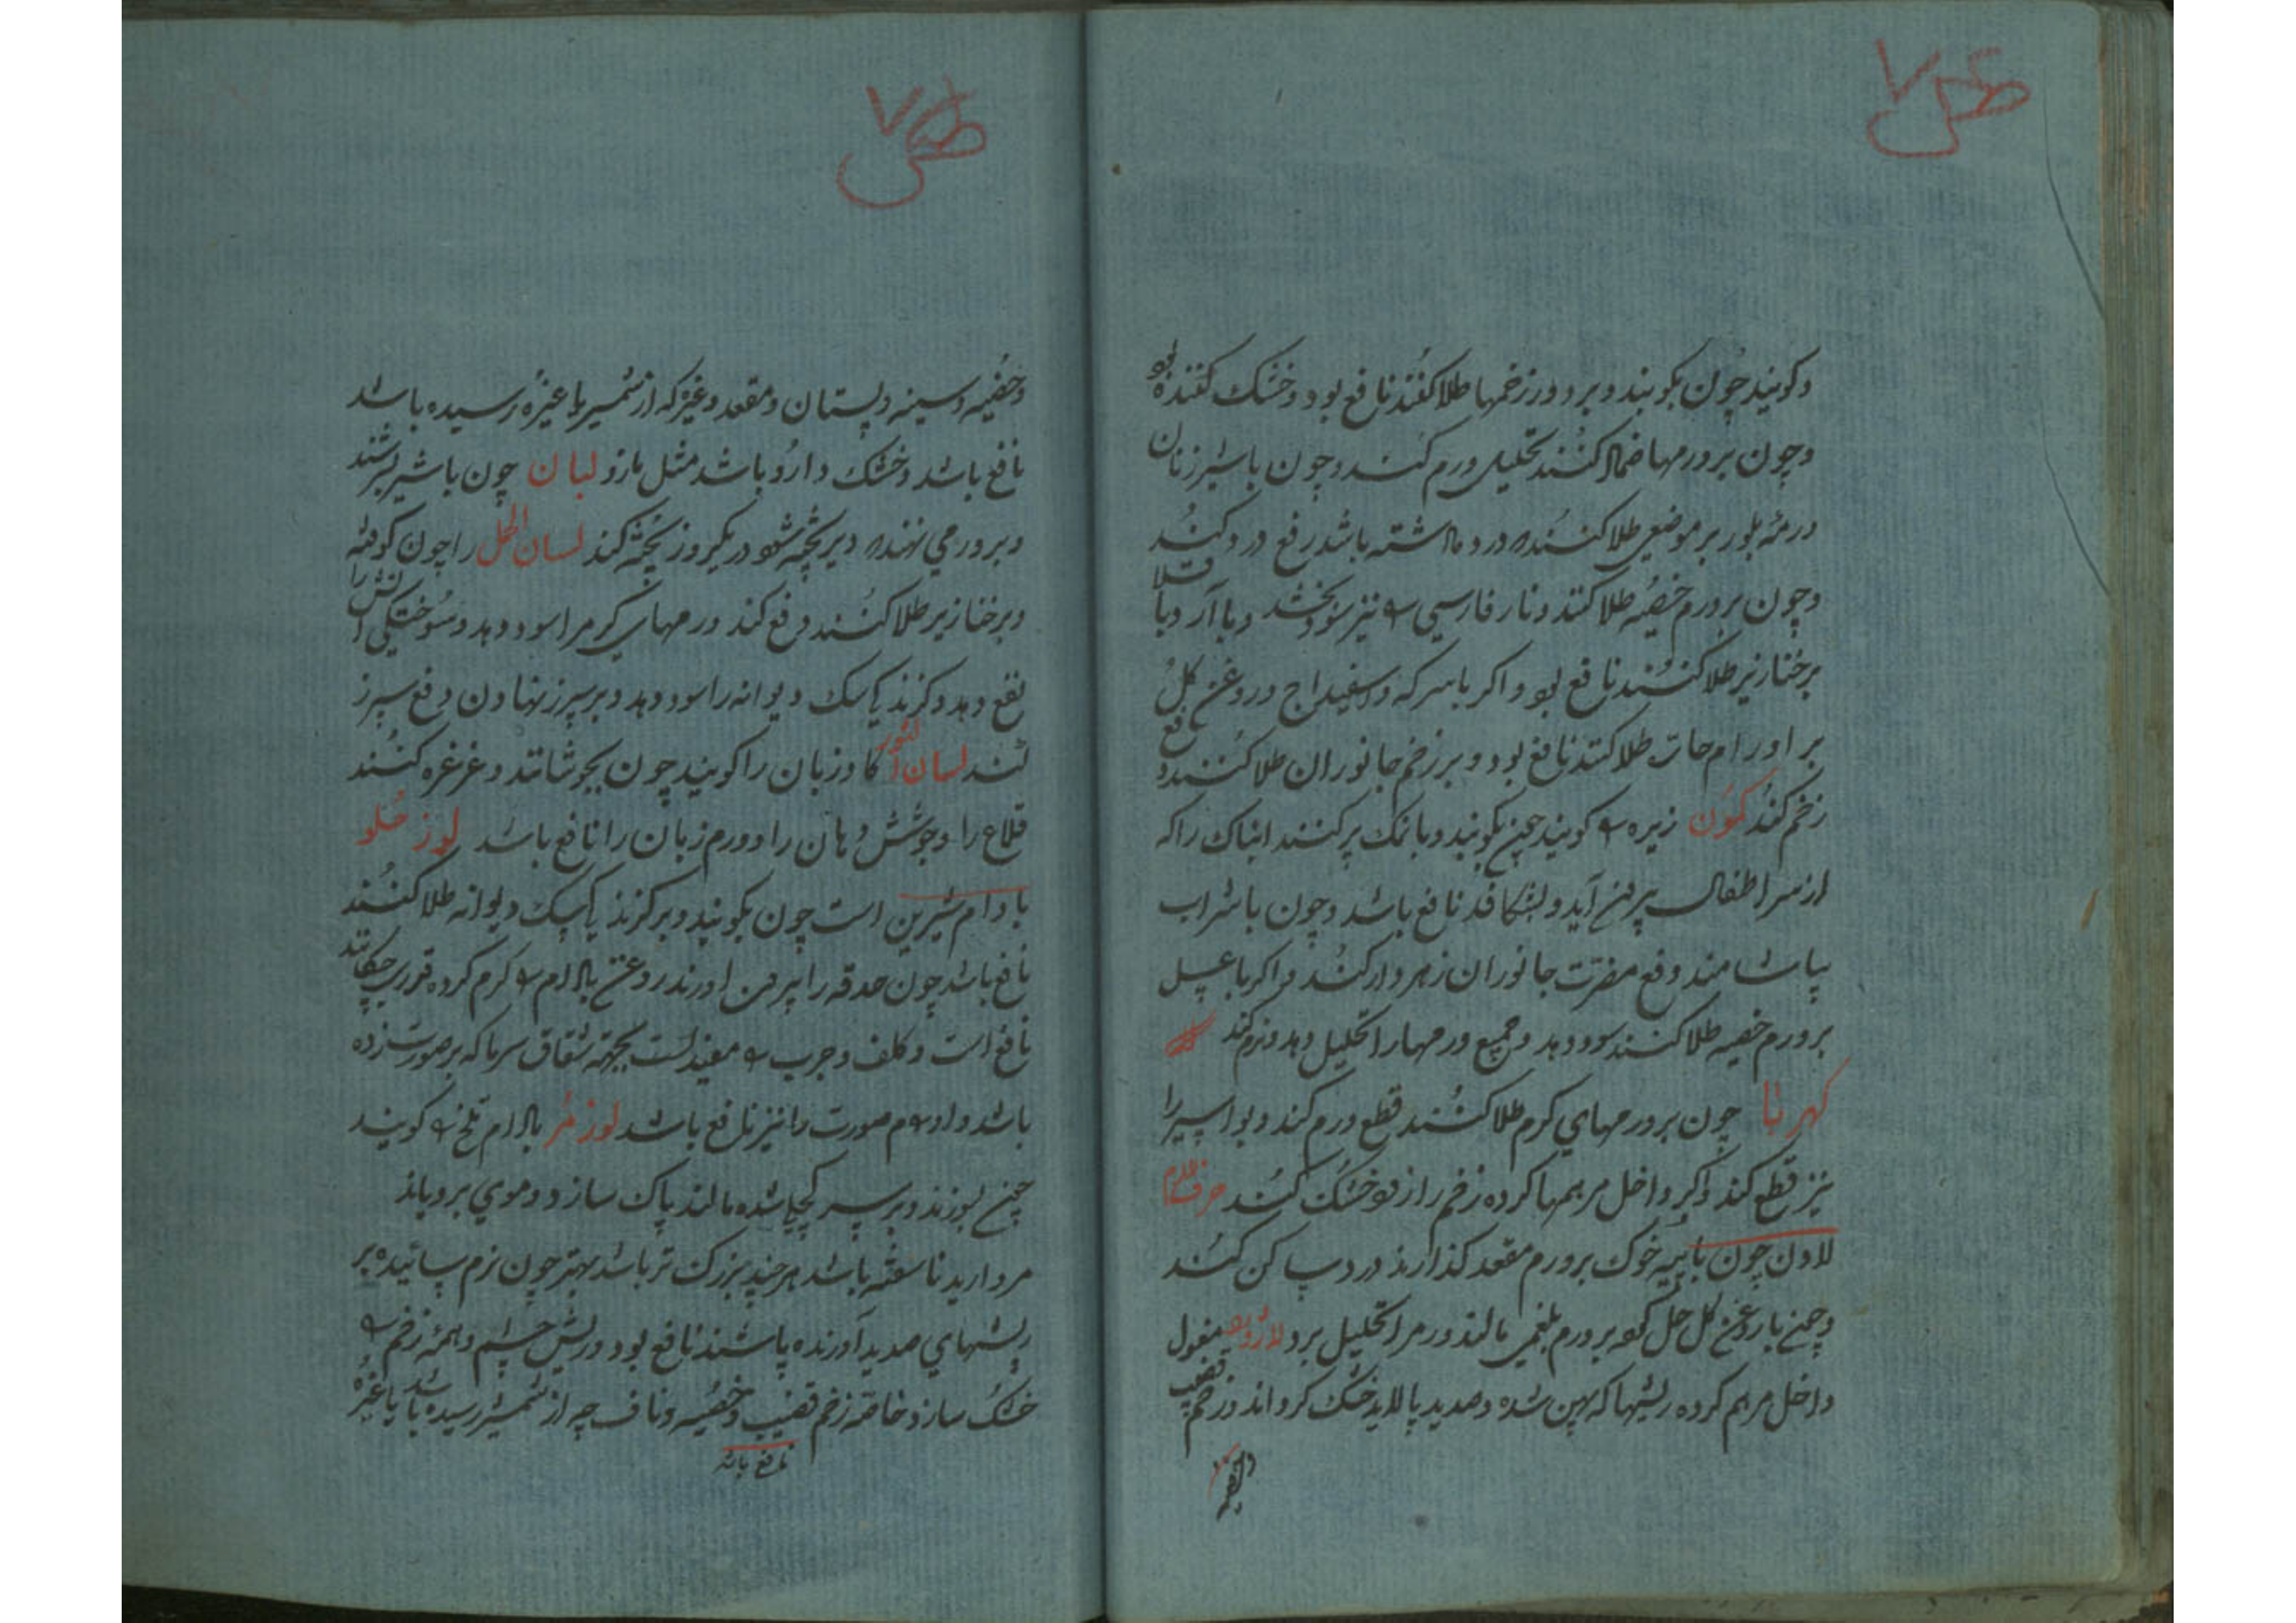 وکویند چون بکوبند و بر ورم زخمها طلا کنند نافع بود و خشک کننده بود
و چون بر ورمها ضماد کنند تحلیل ورم کند و چون با شیر زنان
بر موضعی طلا کنند که درد داشته باشد رفع درد کند
و چون بر ورم خصیه طلا کنند و نار فارسی را نیز سود بخشد و با آرد باقلا
بر خنازیر طلا کنند نافع بود و اکر با سرکه و اسفیداج و روغن کل
بر اورام حاره طلا کنند نافع بود و بر زخم جانوران طلا کنند دفع
زخم کند کمون زیره را کویند چون بکوبند و با نمک پر کنند انباک را که
از سر اطفال بیرون آید و بشکافد نافع باشد و چون با شراب
بیاشامند دفع مضرت جانوران زهردار کند و اکر با عسل
بر ورم خصیه طلا کنند سود دهد و جمیع ورمها را تحلیل دهد و نرم کند
کهربا چون بر ورمهای کرم طلا کنند قطع ورم کند و بواسیر را
نیز قطع کند و اکر داخل مرهمها کرده زخم را زود خشک کند حرف اللام
لادن چون با پیه خوک بر ورم مقعد کذارند درد ساکن کند
و چون با روغن کل حل کرده بر ورم بلغمی مالند ورم را تحلیل برد لازورد مغسول
داخل مرهم کرده ریشها که پهن شده و صدید پالاید خشک کرداند و زخم قضیب
و خصیه
و خصیه و سینه و پستان و مقعد و غیره که از شمشیر یا غیره رسیده باشد
نافع باشد و خشک دارو باشد مثل مازو لبان چون با شیر بسرشند
و بر ورمی نهند که دیر پخته شود در یکروز پخته کند لسان الحمل را چون کوفته
و بر خنازیر طلا کنند دفع کند ورمهای کرم را سود دهد و سوختکی آتش را
نفع دهد و کزندکی سک دیوانه را سود دهد و بر سپرز نهادن دفع سپرز
کند لسان الثور کاوزبان را کویند چون بجوشانند و غرغره کنند
قلاع را و جوشش دهان را و ورم زبان را نافع باشد لوز حلو
بادام شیرین است چون بکوبند و بر کزندکی سک دیوانه طلا کنند
نافع باشد چون حدقه را بیرون آورند روغن بادام را کرم کرده قدری چکانند
نافع است و کلف و جرب را مفید است بجهته شقاق سرما که بر صورت زده
باشد و ورم صورت را نیز نافع باشد لوز مر بادام تلخ را کویند
چون بسوزند و بر سر کچل شده مالند پاک سازد و موی برویاند
مروارید ناسفته باشد هر چند بزرک تر باشد بهتر چون نرم سائیده بر
ریشهای صدید آورنده پاشند نافع بود و ریش چشم و همه زخم را
خشک سازد خاصه زخم قضیب و خصیه و ناف چه از شمشیر رسیده باشد یا غیره
نافع باشد